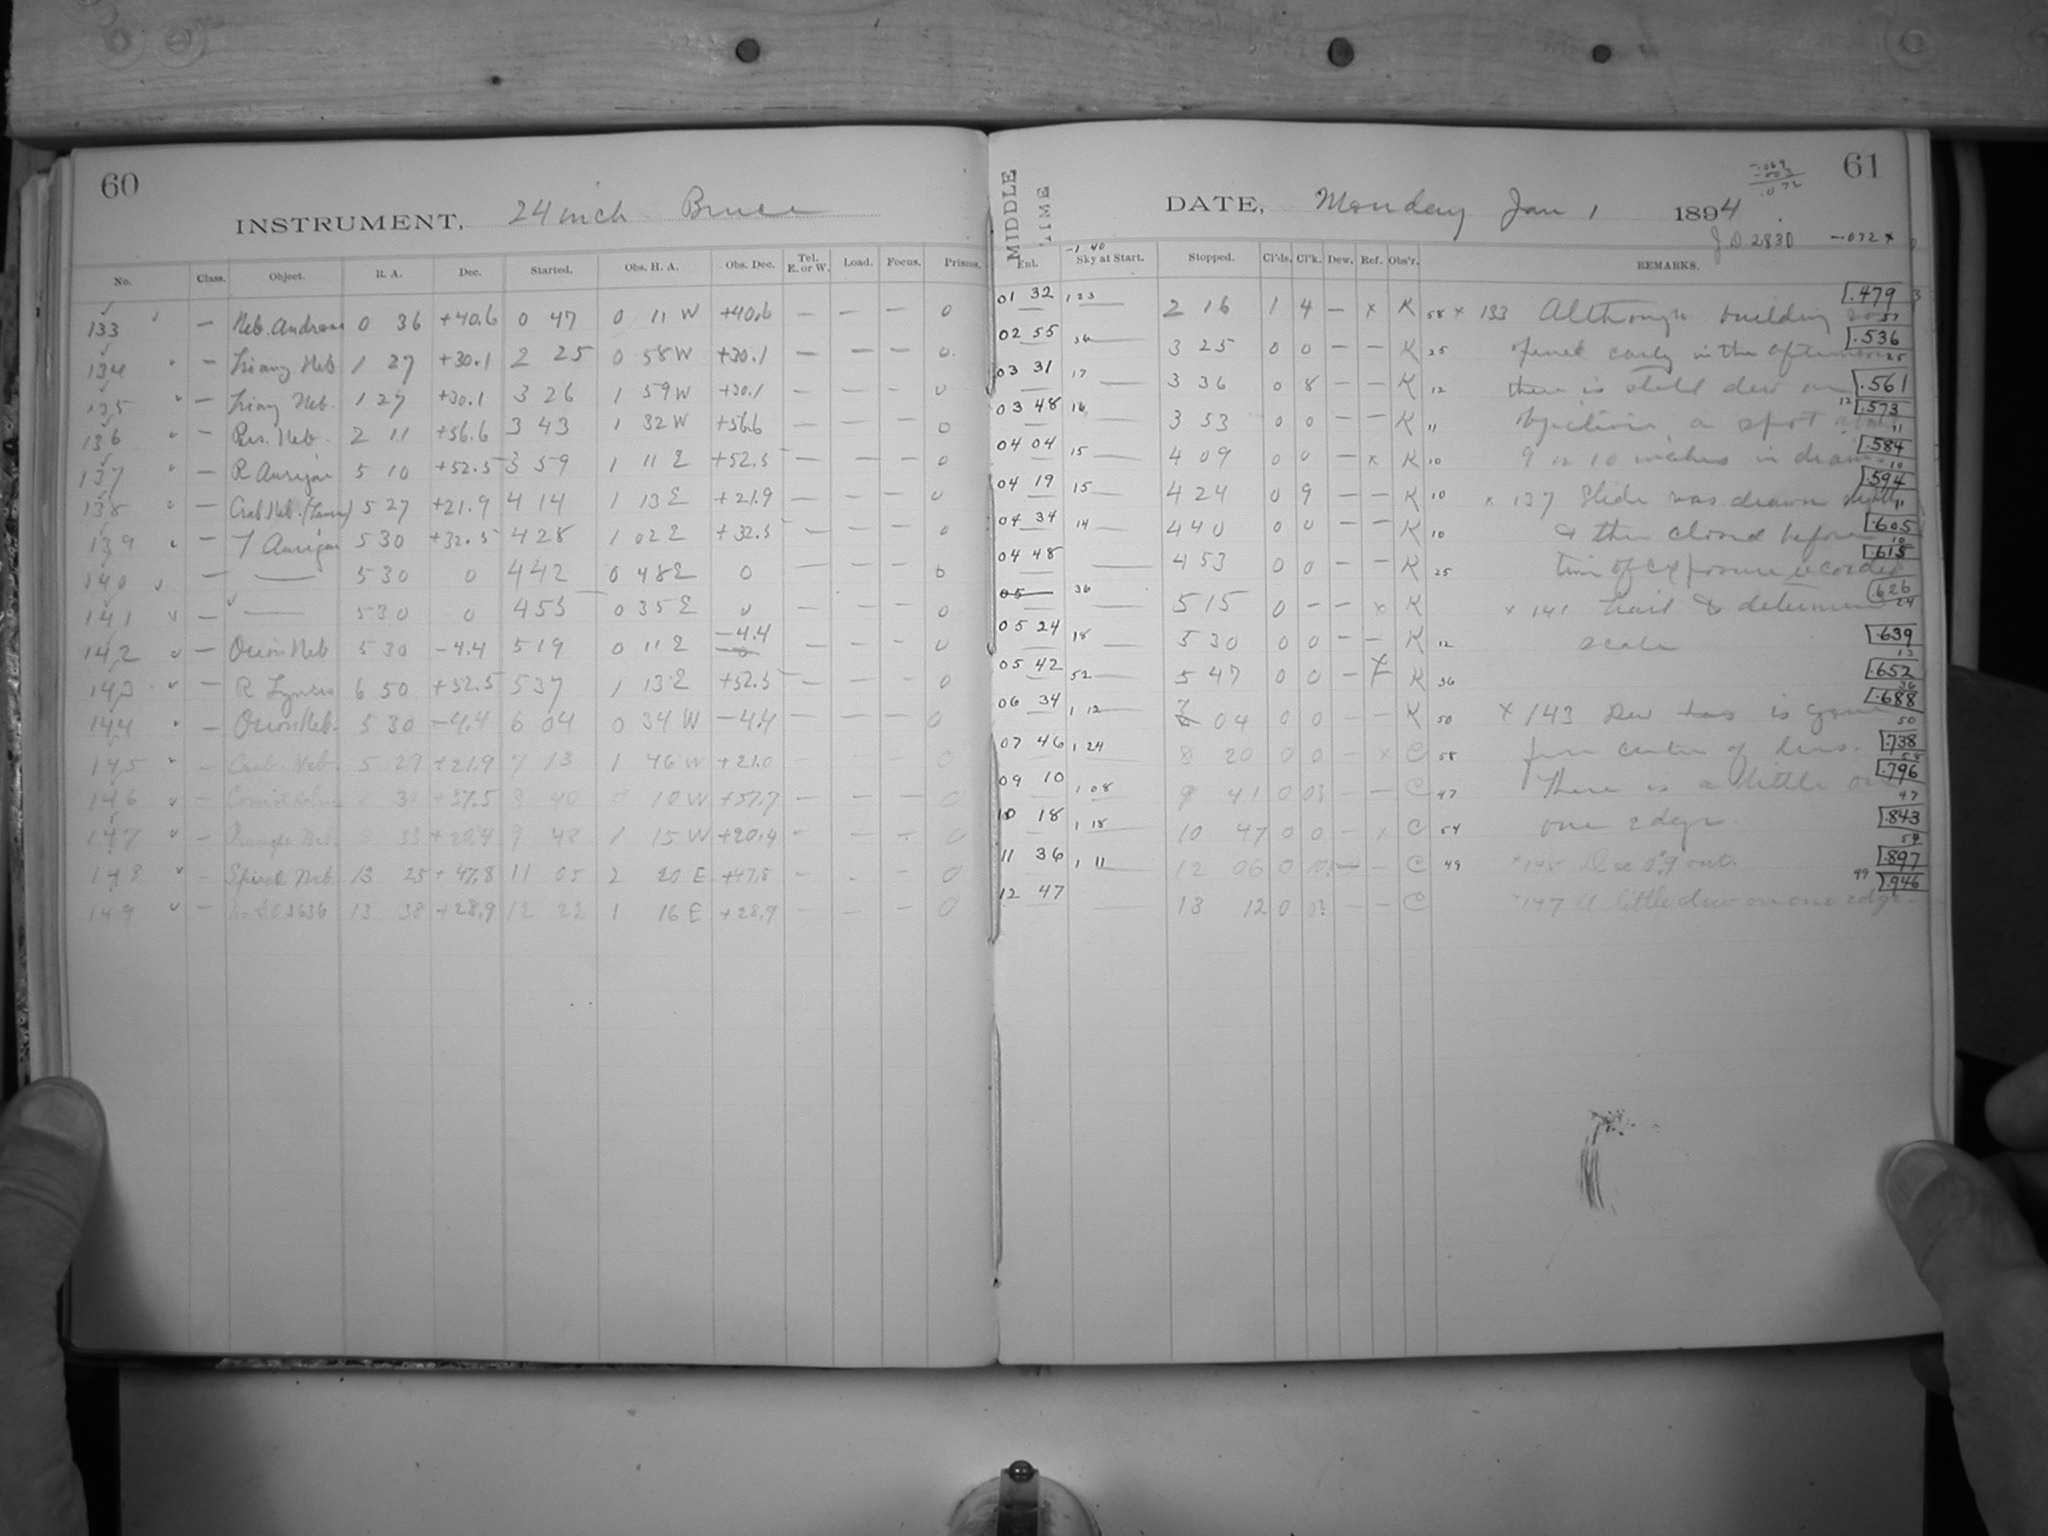 60
INSTRUMENT, 24 inch Bruce
No. Class. Object. R. A. Dec. Started. Obs. H. A. Obs. Dec. Tel. E. or W. Load. Focus. Prisms.
133 — Neb. Androm 0 36 +40.6 0 47 0 11 W +40.6 — — — 0
134 — Triang Neb 1 27 +30.1 2 25 0 58 W +30.1 — — — 0
135 — Triang Neb. 1 27 +30.1 3 26 1 59 W +30.1 — — — 0
136 — Per. Neb. 2 11 +56.6 3 43 1 32 W +56.6 — — — 0
137 — R Aurigae 5 10 +52.5 3 59 1 11 E +52.5 — — — 0
138 — Crab Neb. 5 27 +21.9 4 14 1 13 E +21.9 — — — 0
139 — T Aurigae 5 30 +32.5 4 28 1 02 E +32.5 — — — 0
140 — — 5 30 0 4 42 0 48 E 0 — — — 0
141 — — 5 30 0 4 55 0 35 E 0 — — — 0
142 — Orion Neb 5 30 -4.4 5 19 0 11 E -4.4 — — — 0
143 — R Lyncis 6 50 +52.5 5 37 1 13 E +52.5 — — — 0
144 — Orion Neb. 5 30 -4.4 6 04 0 34 W -4.4 — — — 0
145 — Crab Neb. 5 27 +21.9 7 13 1 46 W +21.0 — — — 0
146 — 8 40 0 10 W +37.7 — — — 0
147 — +20.4 9 48 1 15 W +20.4 — — — 0
148 — Spiral Neb. 13 25 +47.8 11 05 2 20 E +47.8 — — — 0
149 — 3636 13 38 +28.9 12 22 1 16 E +28.9 — — — 0
MIDDLE TIME
61
-.069
-.003
.072
DATE, Monday Jan 1 1894
J.D. 2830 -.072 x
-1 40
Ent. Sky at Start. Stopped. Cl'ds. Cl'k. Dew. Ref. Obs'r. REMARKS.
01 32 1 23 — 2 16 1 4 — x K 58 x 133 Although building .479
02 55 36 — 3 25 0 0 — — K 25 opened early in the afternoon .536
03 31 17 — 3 36 0 8 — — K 12 there is still dew on .561
03 48 16 — 3 53 0 0 — — K 11 objective, a spot about .573
04 04 15 — 4 09 0 0 — x K 10 9 or 10 inches in diam. .584
04 19 15 — 4 24 0 9 — — K 10 x 137 Slide was drawn .594
04 34 14 — 4 40 0 0 — — K 10 & then closed before .605
04 48 — 4 53 0 0 — — K 25 time of exposure recorded .615
05 36 — 5 15 0 — — x K x 141 trail to determine .626
05 24 18 — 5 30 0 0 — — K 12 scale .639
05 42 52 5 47 0 0 — K 36 .652
06 34 1 12 — 7 04 0 0 — — K 50 x 143 Dew has is gone .688
07 46 1 24 8 20 0 0 — x C 58 from center of lens. .738
09 10 1 08 — 9 41 0 — — C 47 There is a little on .796
10 18 1 18 — 10 47 0 0 — C 54 one edge. .843
11 36 1 11 — 12 06 0 — — C 49 x 145 Dec 0.9 out. .897
12 47 13 12 0 — — C x 147 A little dew on one edge. .946